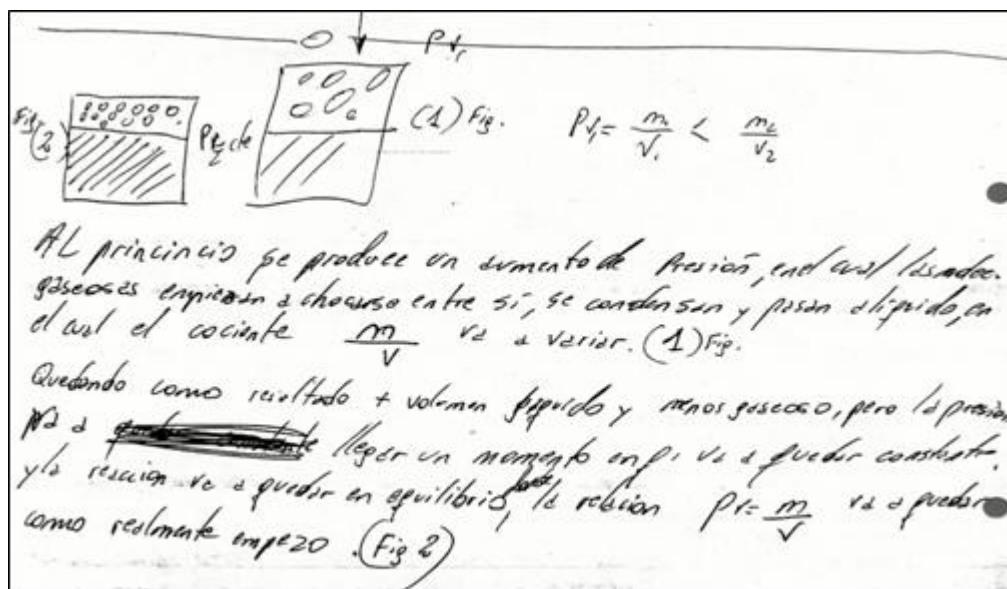 P v₁
Fig. (2)
(1) Fig.
Pv₁ = m/v₁ < m₂/v₂
AL princincio se produce un aumento de Presión, en el cual las molec.
gaseosas empiezan a chocarse entre sí, se condensan y pasan a líquido, en
el cual el cociente m/v va a variar. (1) Fig.
Quedando como resultado + volumen líquido y menos gaseoso, pero la presión
va a llegar un momento en q. va a quedar constante,
y la reaccion va a quedar en equilibrio, la relacion Pv = m/v va a quedar
como realmente empezo. (Fig 2)